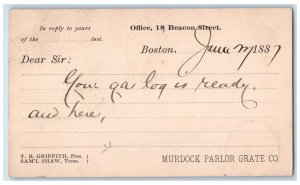 In reply to yours
of the inst.
Office, 18 Beacon Street.
Boston, June 27 1887
Dear Sir:
Your ga log is ready.
and here,
T. R. GRIFFITH, Pres.
SAM'L SHAW, Treas.
MURDOCK PARLOR GRATE CO.